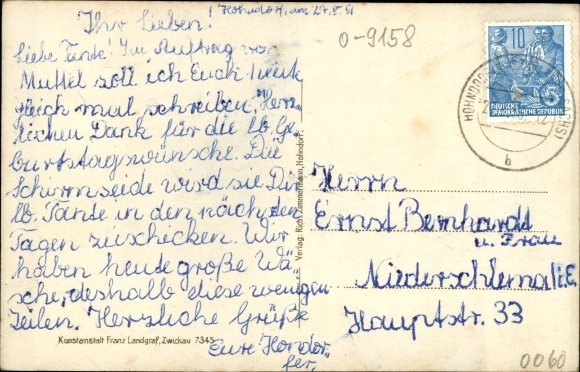 Hohndorf, am 27.8.51
Ihr Lieben!
Liebe Tante! Im Auftrag von
Muttel soll ich Euch heute
gleich mal schreiben. Herz-
lichen Dank für die lb. Ge-
burtstagwünsche. Die
Schirmseide wird sie Dir
lb. Tante in den nächsten
Tagen zuschicken. Wir
haben heute große Wä-
sche, deshalb diese wenigen
Zeilen. Herzliche Grüße
Eure Hondor-
fer.
Kunstanstalt Franz Landgraf, Zwickau 7345
Verlag: Rich. Zimmermann, Hohndorf
0-9158
10
DEUTSCHE
DEMOKRATISCHE REPUBLIK
HOHNDORF
b
Herrn
Ernst Bernhardt
u. Frau
Niederschlema i. E.
Hauptstr. 33
0060